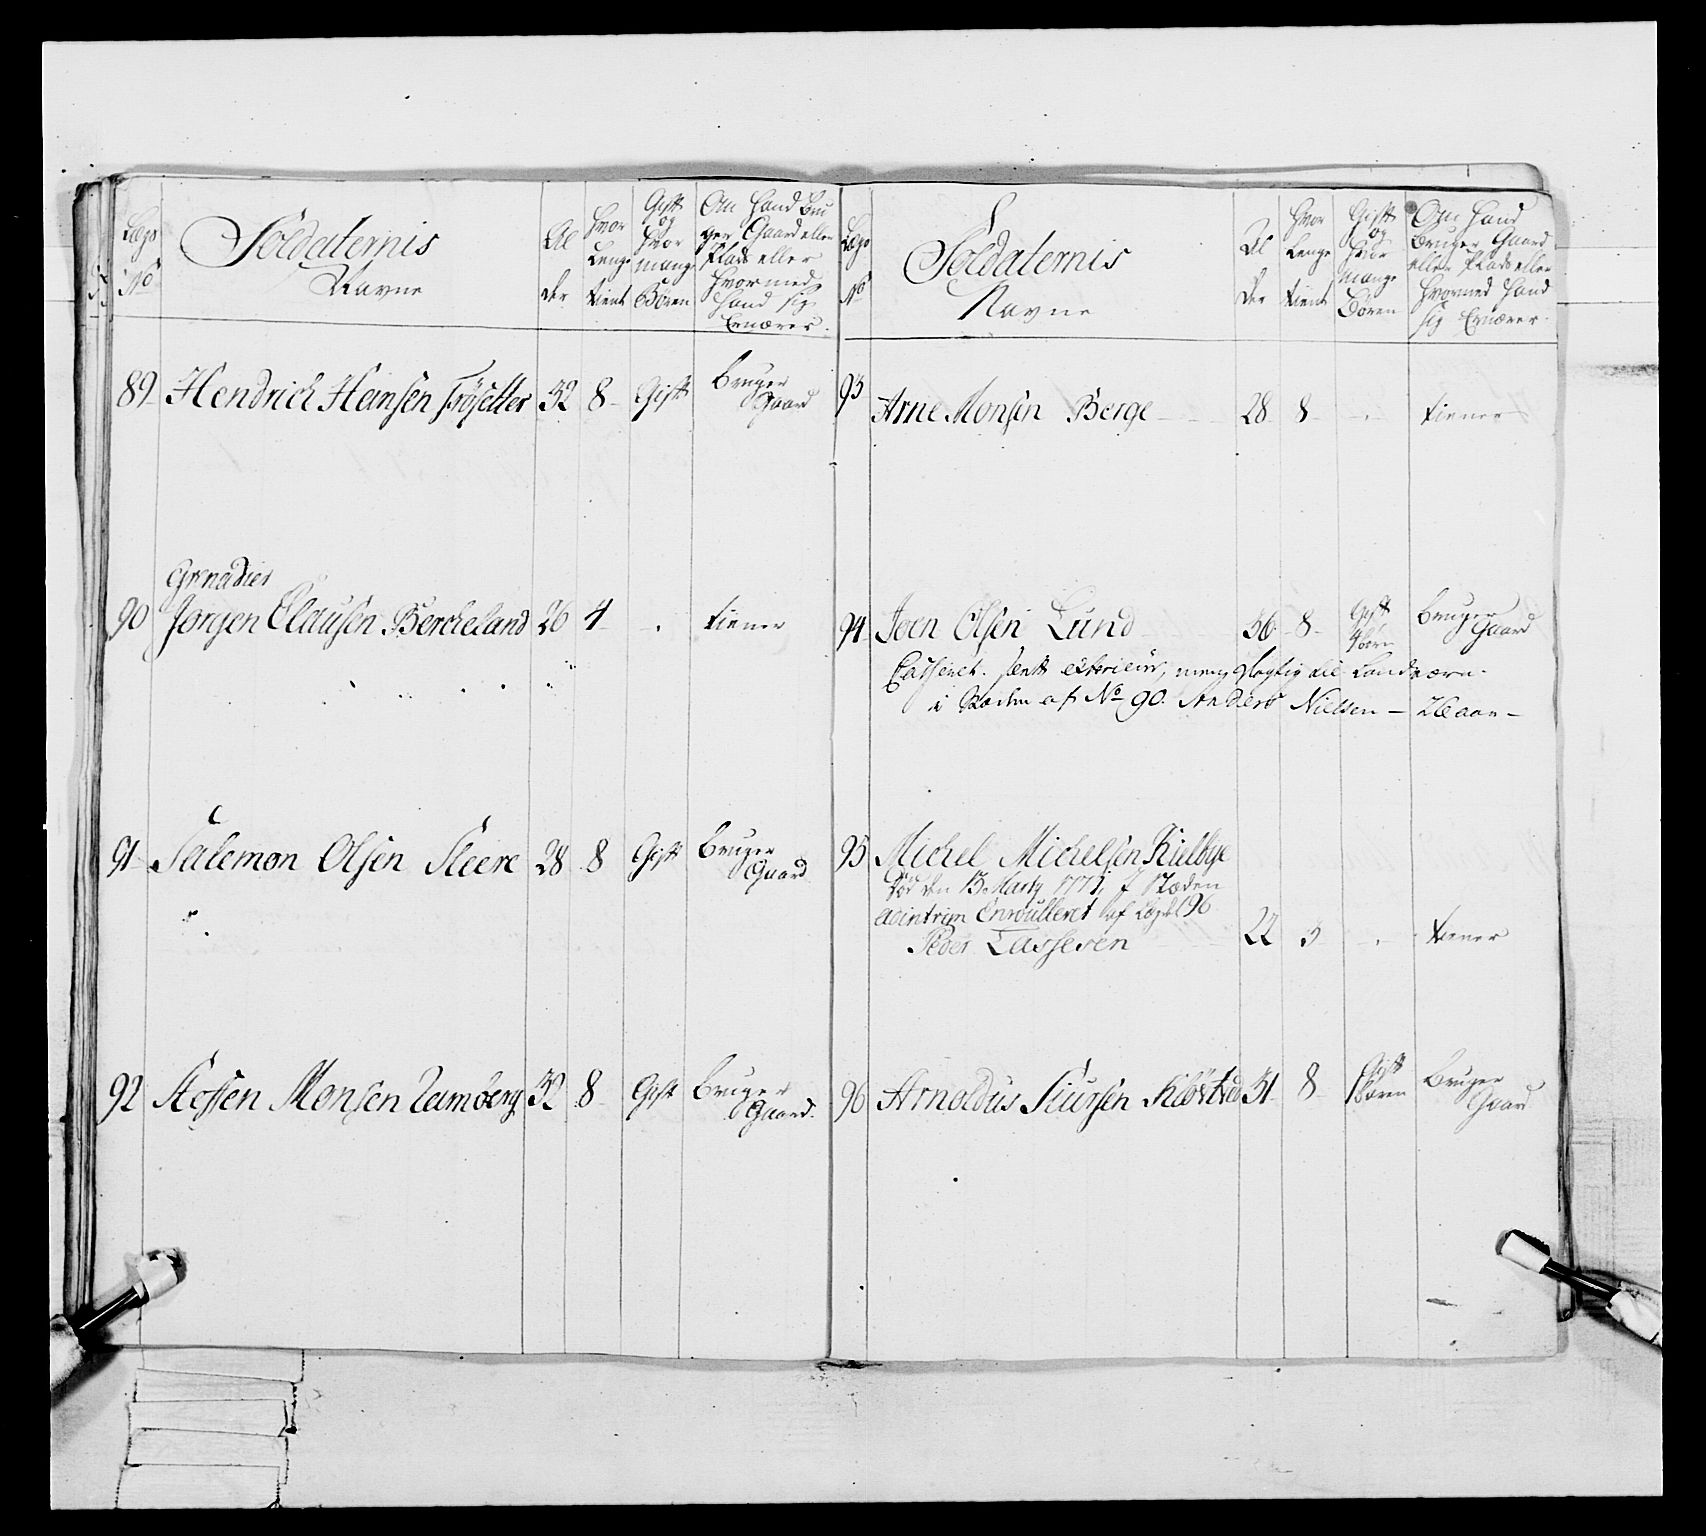 Lægs No
Soldaternis Navne
Al der
Hvor Lenge tient
Gift og Hvor mange Børen
Om Hand Bru
ger Gaard eller
Plads eller
Hvormed
Hand sig
Ernærer
89 Hendrich Hansen Frösetter 32 8 Gift Bruger Gaard
Grenadier
90 Jørgen Clausen Bercheland 26 4 . tiener
91 Salemon Olsen Steere 28 8 Gift Bruger Gaard
92 Steffen Monsen Ramberg 32 8 Gift Bruger Gaard
Lægs No
Soldaternis Navne
Al der
Hvor Lenge tient
Gift og Hvor mange Børen
Om Hand
Bruger Gaard
eller Plads eller
Hvormed Hand
sig Ernærer
93 Arne Monsen Berge 28 8 tiener
94 Joen Olsen Lund 36 8 Gift Børn Bruger Gaard
Casseret. slett exterieur, men dygtig til Landværn
i Stæden af No 90 Anders Nielsen - 26 aar -
95 Michel Michelsen Kielbye
Død den 13 Marty 1771, I Stæden
adintrim Enroulleret af Lægd 96
Peder Lassesen 22 3 . tiener
96 Arnoldus Siursen 31 8 Gift 1 Børen Bruger Gaard